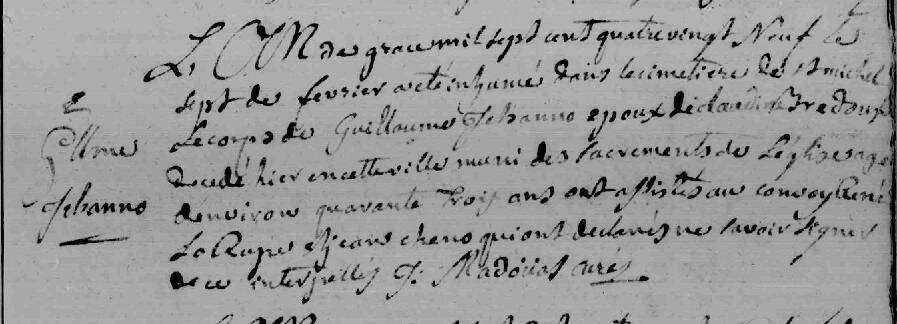 L'An de grace mil sept cent quatre vingt Neuf le
sept de fevrier a eté inhumé dans le cimetiere de st michel
Le corps de Guillaume Jehanno epoux de claudine
decedé hier en cette ville muni des sacrements de L'église agé
d'environ quarante trois ans ont assistés au convoy René
Le et jean cheno qui ont declarés ne savoir signer
de ce interpellés J:
Gllme
Jehanno